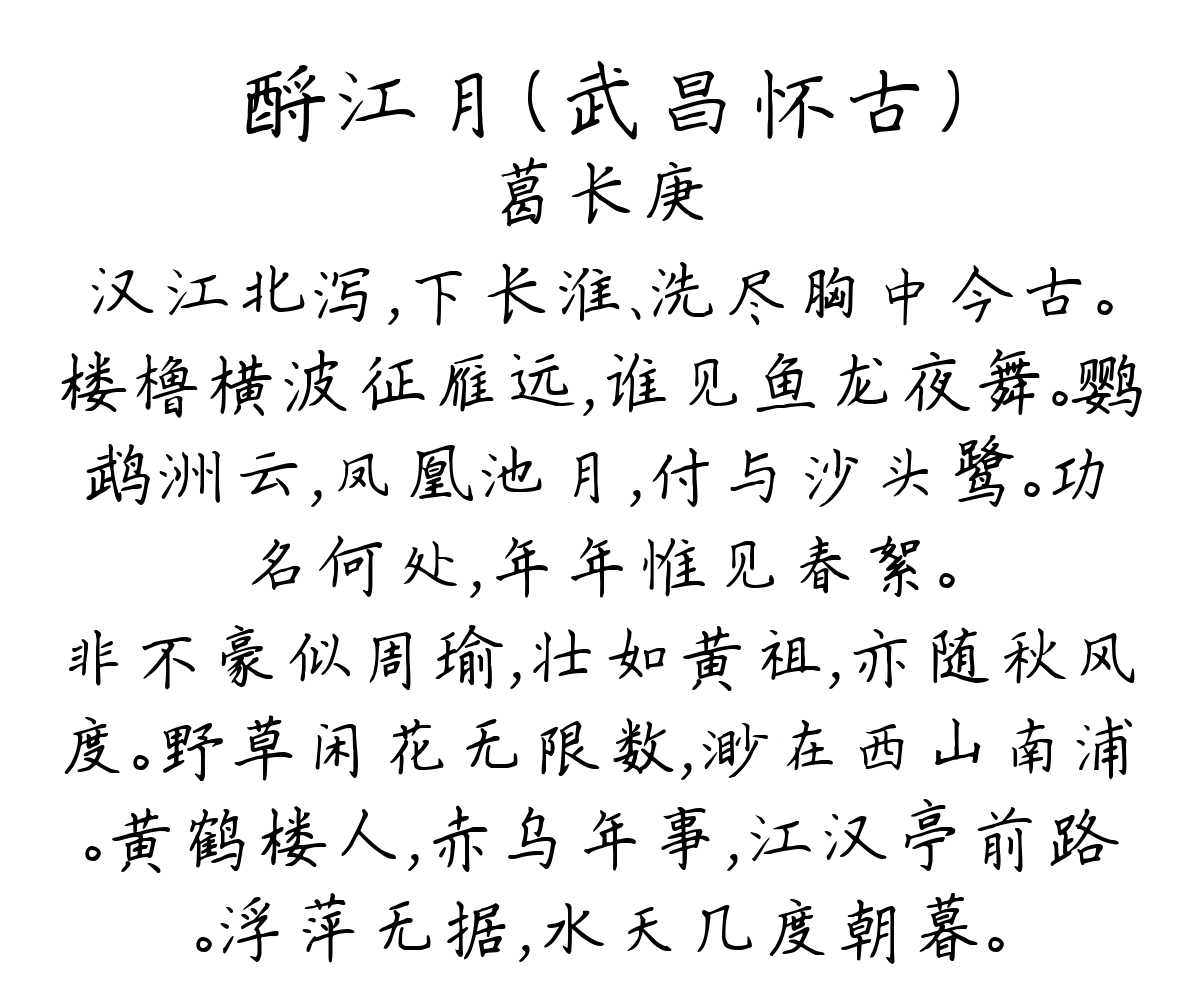 酹江月(武昌怀古)
葛长庚
汉江北泻,下长淮、洗尽胸中今古。
楼橹横波征雁远,谁见鱼龙夜舞。鹦
鹉洲云,凤凰池月,付与沙头鹭。功
名何处,年年惟见春絮。
非不豪似周瑜,壮如黄祖,亦随秋风
度。野草闲花无限数,渺在西山南浦
。黄鹤楼人,赤乌年事,江汉亭前路
。浮萍无据,水天几度朝暮。